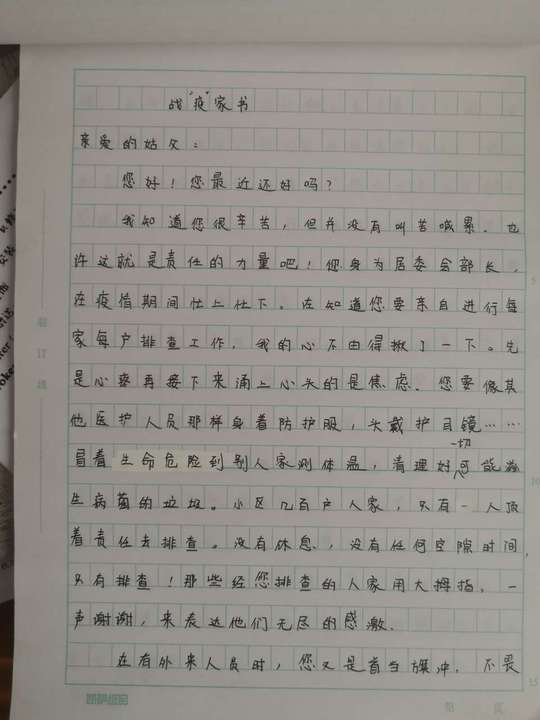 战“疫”家书
亲爱的姑父：
您好！您最近还好吗？
我知道您很辛苦，但并没有叫苦喊累。也
许这就是责任的力量吧！您身为居委会部长，
在疫情期间忙上忙下。在知道您要亲自进行每
家每户排查工作，我的心不由得揪了一下。先
是心疼再接下来涌上心头的是焦虑。您要像其
他医护人员那样身着防护服，头戴护目镜……
冒着生命危险到别人家测体温，清理好一切可能滋
生病菌的垃圾。小区几百户人家，只有一人顶
着责任去排查。没有休息，没有任何空隙时间，
只有排查！那些经您排查的人家用大拇指，一
声谢谢，来表达他们无尽的感激．
在有外来人员时，您又是首当旗冲，不畏
装
订
线
5
10
15
第 页